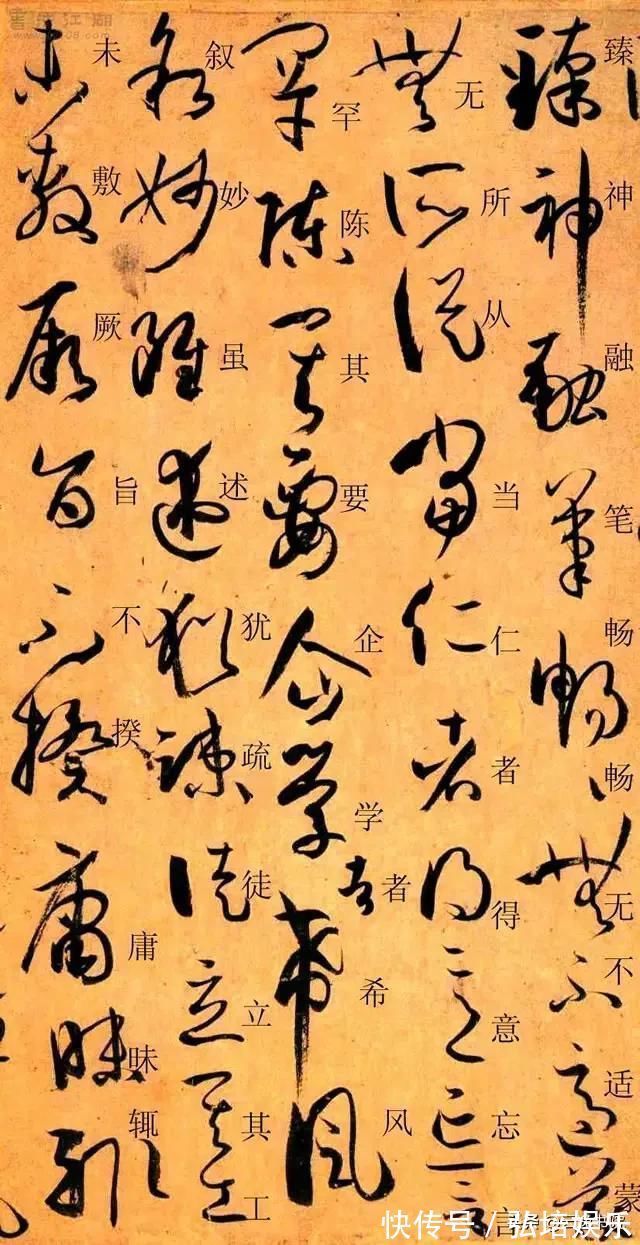 臻神融笔畅畅无不适蒙
无所从当仁者得意忘言
罕陈其要企学者希风
叙妙虽述犹疏徒立其工
未敷厥旨不揆庸昧辄
快传号 / 弘培娱乐